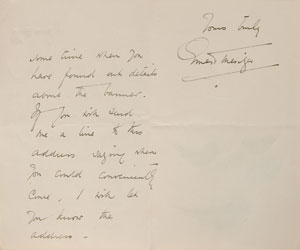 some time when you
have found out details
about the banner.
If you will send
me a line to this
address saying when
you could conveniently
come, I will let
you know the
address -
Yours truly